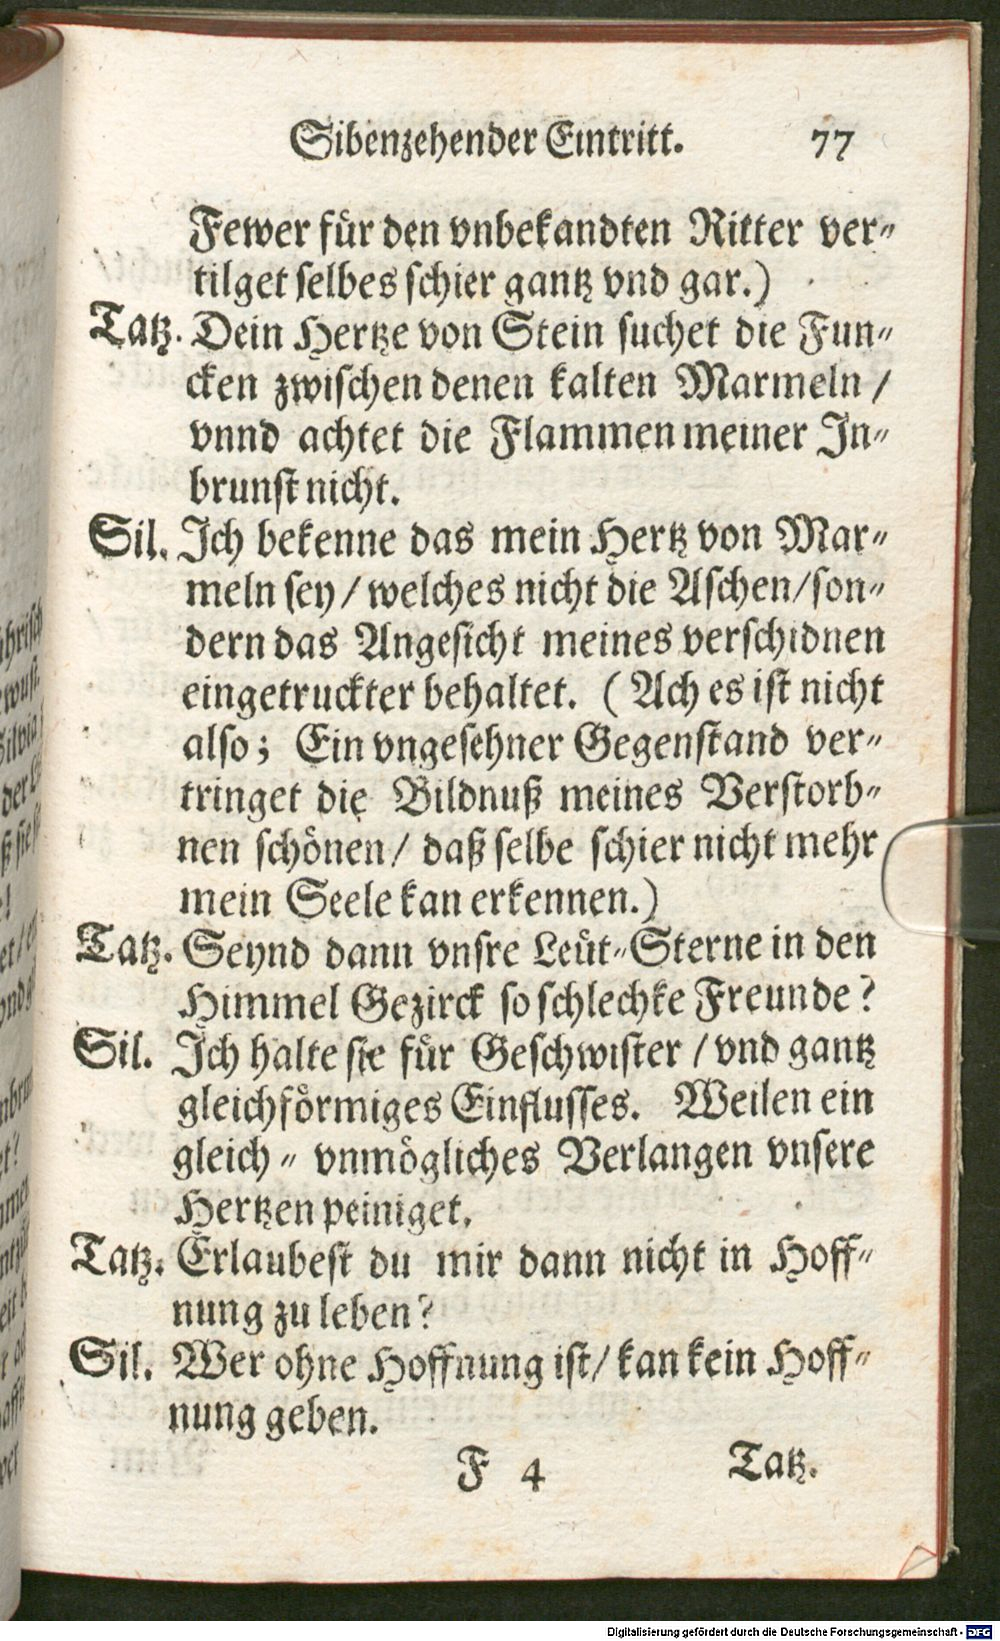 Sibenzehender Eintritt. 77
Fewer für den vnbekandten Ritter ver-
tilget selbes schier gantz vnd gar.)
Tatz. Dein Hertze von Stein suchet die Fun-
cken zwischen denen kalten Marmeln /
vnnd achtet die Flammen meiner In-
brunst nicht.
Sil. Ich bekenne das mein Hertz von Mar-
meln sey / welches nicht die Aschen/son-
dern das Angesicht meines verschidnen
eingetruckter behaltet. (Ach es ist nicht
also; Ein vngesehner Gegenstand ver-
tringet die Bildnuß meines Verstorb-
nen schönen / daß selbe schier nicht mehr
mein Seele kan erkennen.)
Tatz. Seynd dann vnsre Leüt-Sterne in den
Himmel Gezirck so schlechte Freunde?
Sil. Ich halte sie für Geschwister / vnd gantz
gleichförmiges Einflusses. Weilen ein
gleich - vnmögliches Verlangen vnsere
Hertzen peiniget.
Tatz. Erlaubest du mir dann nicht in Hoff-
nung zu leben?
Sil. Wer ohne Hoffnung ist / kan kein Hoff-
nung geben.
F 4 Tatz.
Digitalisierung gefördert durch die Deutsche Forschungsgemeinschaft - DFG